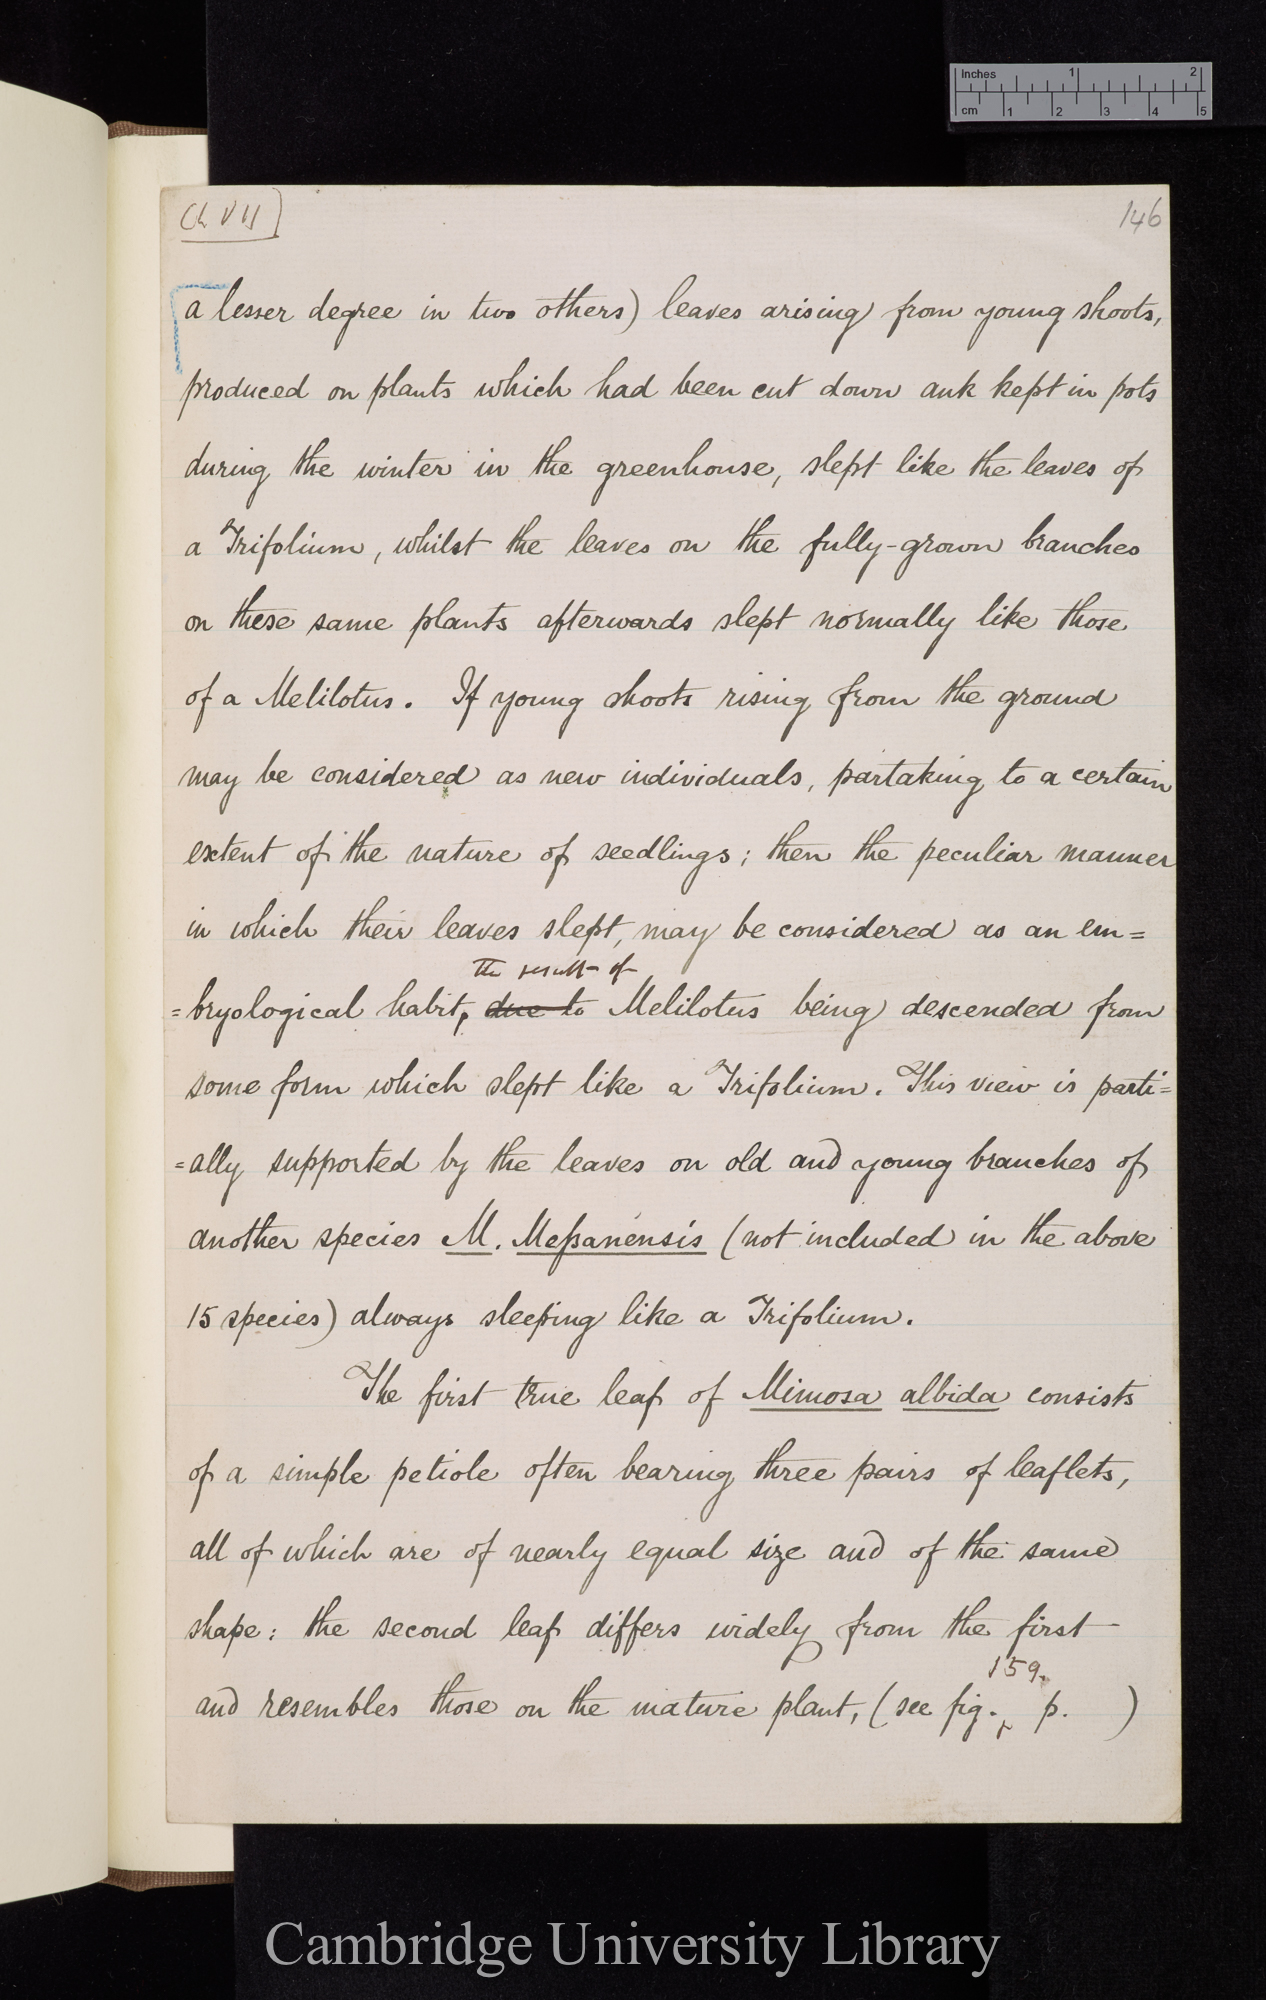 Inches 1 2
cm 1 2 3 4 5
Ch VII]
146
a lesser degree in two others) leaves arising from young shoots,
produced on plants which had been cut down ank kept in pots
during the winter in the greenhouse, slept like the leaves of
a Trifolium, whilst the leaves on the fully-grown branches
on these same plants afterwards slept normally like those
of a Melilotus. If young shoots rising from the ground
may be considered as new individuals, partaking to a certain
extent of the nature of seedlings; then the peculiar manner
in which their leaves slept, may be considered as an em=
the result of
=bryological habit, due to Melilotus being descended from
some form which slept like a Trifolium. This view is parti=
=ally supported by the leaves on old and young branches of
another species M. Messanensis (not included in the above
15 species) always sleeping like a Trifolium.
The first true leaf of Mimosa albida consists
of a simple petiole often bearing three pairs of leaflets,
all of which are of nearly equal size and of the same
shape: the second leaf differs widely from the first
159.
and resembles those on the mature plant, (see fig. p. )
Cambridge University Library